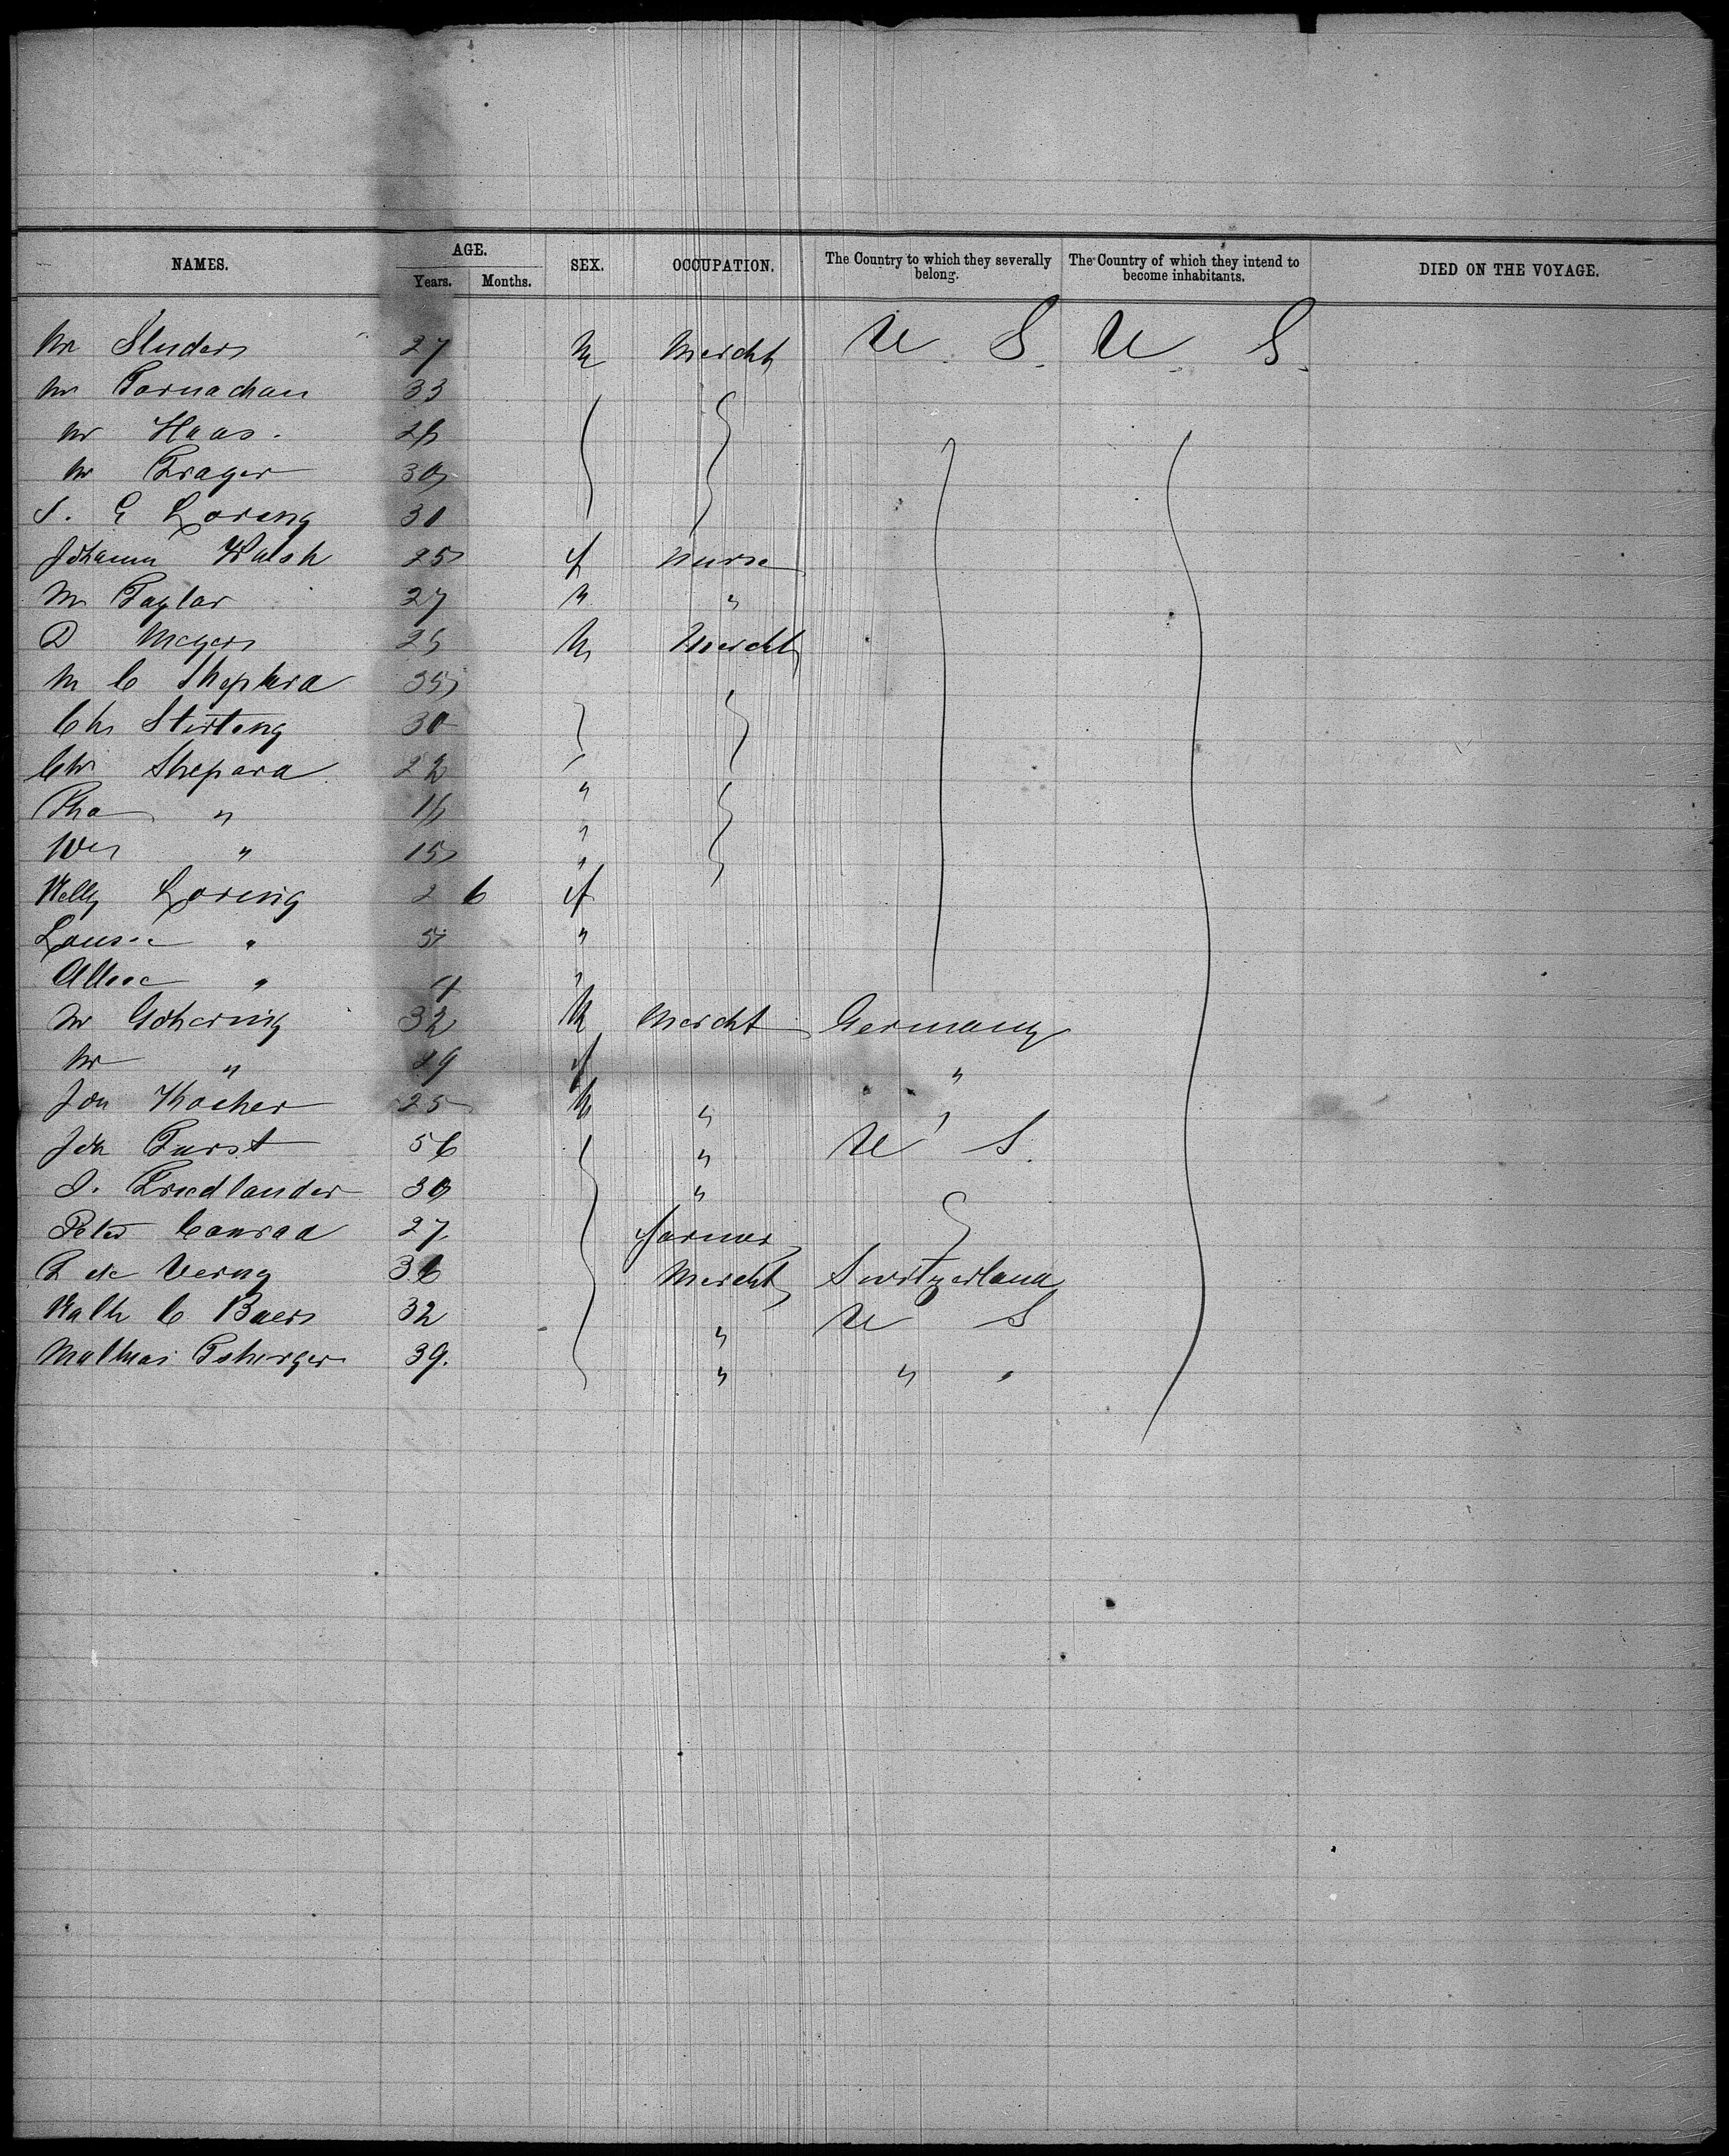 NAMES. AGE. SEX. OCCUPATION. The Country to which they severally belong. The Country of which they intend to become inhabitants. DIED ON THE VOYAGE.
Years. Months.
Mr Studers 27 M Mercht U S. U S.
Mr 33
Mr Haas. 26
Mr Prager 30
S. G Loring 31
Johanna Walsh 25 f Nurse
M Taylor 27 " "
D Meyers 25 M Mercht
M C Shepherd 35
Chs Stirling 30
Chs Shepard 22 "
Tho " 16 "
Wm " 15 "
Nelly Loring 2 6 f
Louise " 5 "
Allice " 4 "
Mr Gohering 32 M Mercht Germany
Mr " 29 f "
Jon Kocher 25 M " "
Joh Furst 56 " U S.
S. Friedlander 30 "
Peter Conrad 27 farmer
F de Verny 36 Mercht Switzerland
Nath C Baers 32 " U S
Mathias 39. " " "